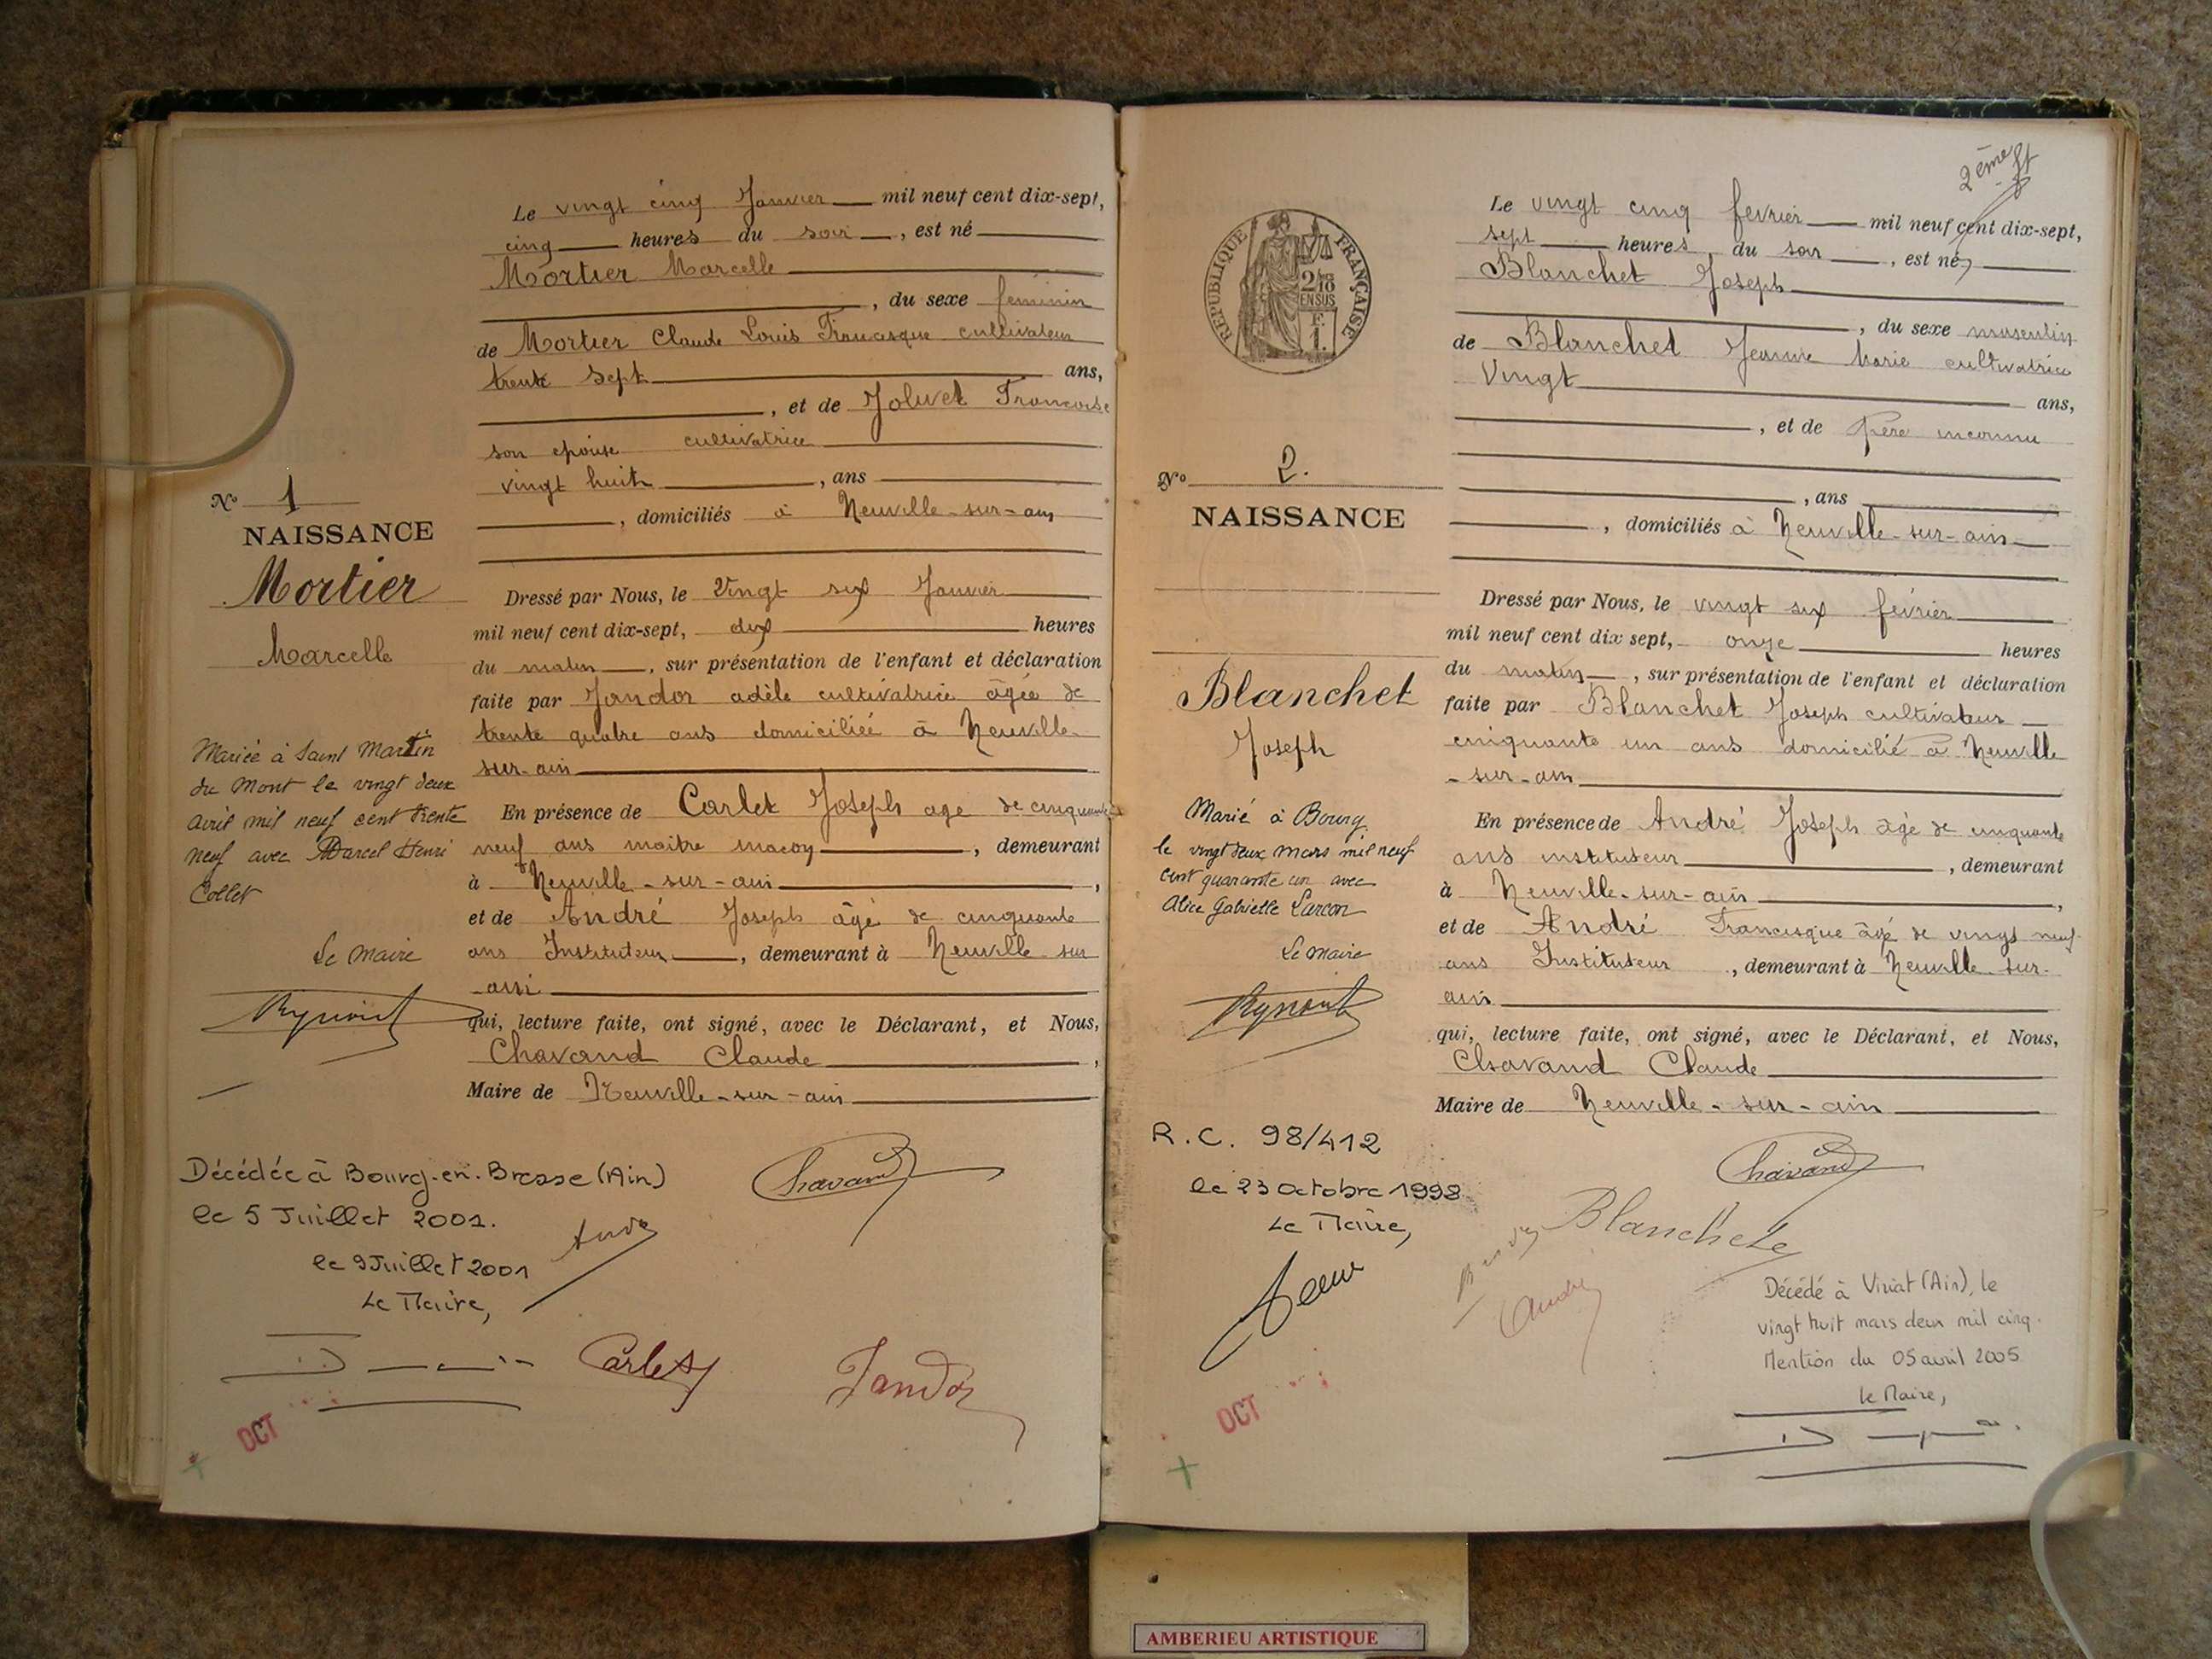 Le vingt cinq Janvier mil neuf cent dix-sept,
cinq heures du soir, est né
Mortier Marcelle
, du sexe feminin
de Mortier Claude Louis Francisque cultivateur
trente sept ans,
, et de Joluvet Francoise
son epouse cultivatrice
vingt huit, ans
, domiciliés à Neuville-sur-ain
Nº 1
NAISSANCE
Mortier
Marcelle
Dressé par Nous, le vingt six Janvier
mil neuf cent dix-sept, dix heures
du matin, sur présentation de l'enfant et déclaration
faite par Jandor adèle cultivatrice âgée de
trente quatre ans domiciliée à Neuville
sur-ain
En présence de Carlet Joseph age de cinquante
neuf ans maitre maçon, demeurant
à Neuville-sur-ain,
et de André Joseph âgé de cinquante
ans Instituteur, demeurant à Neuville sur
-ain
qui, lecture faite, ont signé, avec le Déclarant, et Nous,
Chavand Claude,
Maire de Neuville-sur-ain
Mariée à Saint Martin
du Mont le vingt deux
avril mil neuf cent trente
neuf avec Marcel Henri
Collet
Le Maire
Décédée à Bourg-en-Bresse (Ain)
le 5 Juillet 2001.
le 9 Juillet 2001
Le Maire,
Chavand
André
Carlet
Jandor
OCT
2ème ft
Le vingt cinq fevrier mil neuf cent dix-sept,
sept heures du soir, est né
Blanchet Joseph
, du sexe masculin
de Blanchet Jeanne Marie cultivatrice
Vingt ans,
, et de Père inconnu
, ans
, domiciliés à Neuville-sur-ain
REPUBLIQUE FRANÇAISE
2/10
EN SUS
F.
1.
Nº 2.
NAISSANCE
Blanchet
Joseph
Dressé par Nous, le vingt six février
mil neuf cent dix sept, onze heures
du matin, sur présentation de l'enfant et déclaration
faite par Blanchet Joseph cultivateur
cinquante un ans domicilié à Neuville
-sur-ain
En présence de André Joseph âgé de cinquante
ans instituteur, demeurant
à Neuville-sur-ain,
et de André Francisque âgé de vingt neuf
ans Instituteur, demeurant à Neuville-sur-
ain
qui, lecture faite, ont signé, avec le Déclarant, et Nous,
Chavand Claude
Maire de Neuville-sur-ain
Marié à Bourg
le vingt deux mars mil neuf
cent quarante un avec
Alice Gabrielle Larcon
Le Maire
R.C. 98/412
le 23 octobre 1998
Le Maire,
Chavand
Blanchet
André
Décédé à Viriat (Ain), le
vingt huit mars deux mil cinq.
Mention du 05 avril 2005
le Maire,
OCT
AMBERIEU ARTISTIQUE